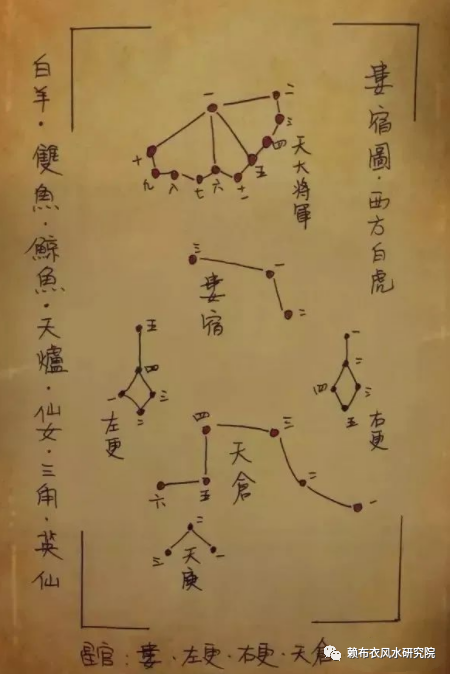 婁宿圖·西方白虎
白羊·雙魚·鯨魚·天爐·仙女·三角·英仙
一
二
三
四
五
十
九
八
七
六
十一
天大将軍
三
一
二
婁宿
五
四
一
三
二
左更
一
二
四
三
五
右更
四
三
二
一
五
六
天倉
二
三
一
天庾
星官：婁·左更·右更·天倉
赖布衣风水研究院